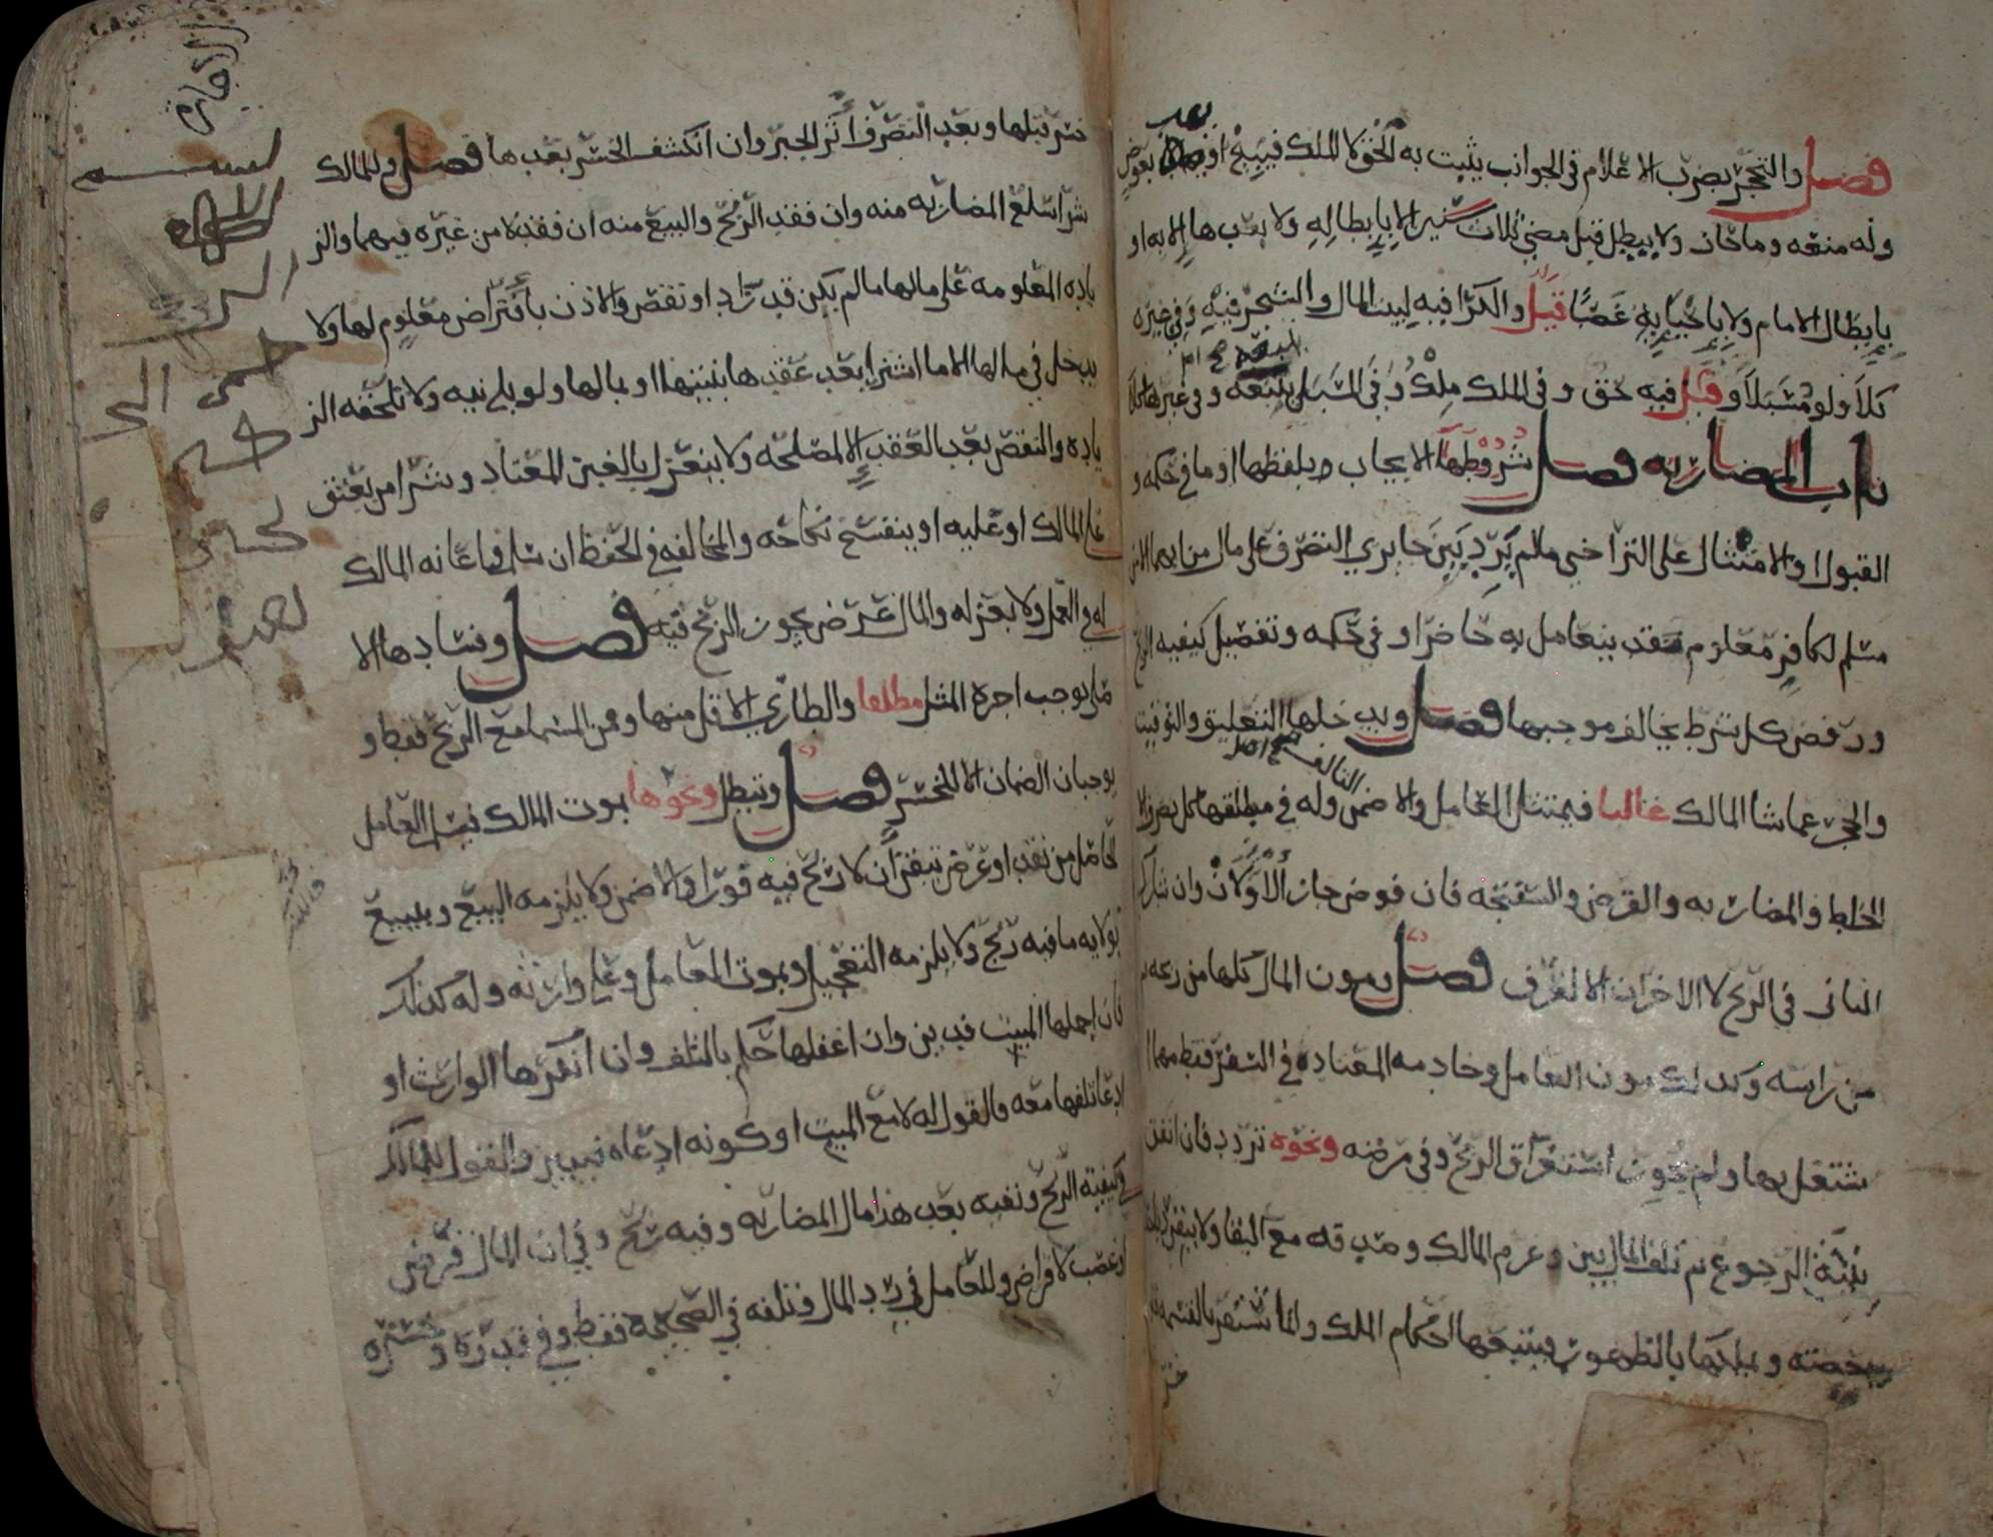 فصل والتحجر بضرب الاعلام في الجوانب يثبت به الحق لا الملك فيبيح او بعوض
وله منعه وما حاز ولا يبطل قبل مضي ثلاث سنين الا بابطاله ولا بعدها الا به او
بابطال الامام ولا باحيايه غصبا قيل والكرا فيه لبيت المال والشجر فيه وفي غيره
كلأ ولو مسبلا وقيل فيه حق وفي الملك ملك وفي المسبل يتبعه وفي غيرها كلأ
باب المضاربه فصل شروطها الايجاب بلفظها او ما في حكمه و
القبول او الامتثال على التراخي مالم يرد بين جايزي التصرف على مال من ايهما الا من
مسلم لكافر معلوم نقد يتعامل به حاضر او في حكمه وتفصيل كيفيه الربح
ورفض كل شرط يخالف موجبها فصل ويدخلها التعليق والتوقيت
والحجر عما شا المالك غالبا فيمتثل العامل والا ضمن التالف وله في مطلقها كل تصرف الا
الخلط والمضاربه والقرض والسفتجه فان فوض جاز الاولان وان شارك
الثاني في الربح لا الاخران الا لعرف فصل ومون المال كلها من ربحه ثم
من راسه وكذلك مون العامل وخادمه المعتاده في السفر فقط مهما ا
شتغل بها ولم يجوز استغراق الربح وفي مرضه ونحوه تردد فان انفق
بنية الرجوع ثم تلف المال بين وغرم المالك وصدقه مع البقا ولا ينفرد باخذ
حصته ويملكها بالظهور فيتبعها احكام الملك وانما تستقر بالقسمه
خسر
خسر قبلها وبعد التصرف آثر الجبر وان انكشف الخسر بعدها فصل وللمالك
شرا سلع المضاربه منه وان فقد الربح والبيع منه ان فقد لا من غيره فيهما والز
ياده المعلومه على مالها مالم يكن قد زاد او نقص والاذن باقتراض معلوم لها ولا
يدخل في مالها الا ما اشتري بعد عقدها بنيتها او بمالها ولو بلا نيه ولا تلحقه الز
ياده والنقص بعد العقد الا لمصلحه ولا ينعزل بالغبن المعتاد وشرا من يعتق
على المالك او عليه او ينفسخ نكاحه والمخالفه في الحفظ ان سلم واعانه المالك
له في العمل ولا بعزله والمال عرض يجوز الربح فيه فصل وفسادها الا
صلي يوجب اجره المثل مطلقا والطاري الاقل منها ومن المسما مع الربح فقط و
يوجبان الضمان الا للخسر فصل وتبطل ونحوها بموت المالك فيسلم العامل
الحاصل من نقد او عرض تيقن ان لا ربح فيه فورا والا ضمن ولا يلزمه البيع ويبيع
بولايه ما فيه ربح ولا يلزمه التعجيل وبموت العامل وعلى وارثه وله كذلك
فان اجملها الميت فدين وان اغفلها حكم بالتلف وان انكرها الوارث او
ادعا تلفها معه فالقول له لا مع الميت او كونه ادعاه فيبين والقول للمالك
في كيفيه الربح ونفيه بعد هذا مال المضاربه وفيه ربح وفي ان المال قرض
او غصب لا قراض وللعامل في رد المال وتلفه في الصحيحه فقط وفي قدره وخسره